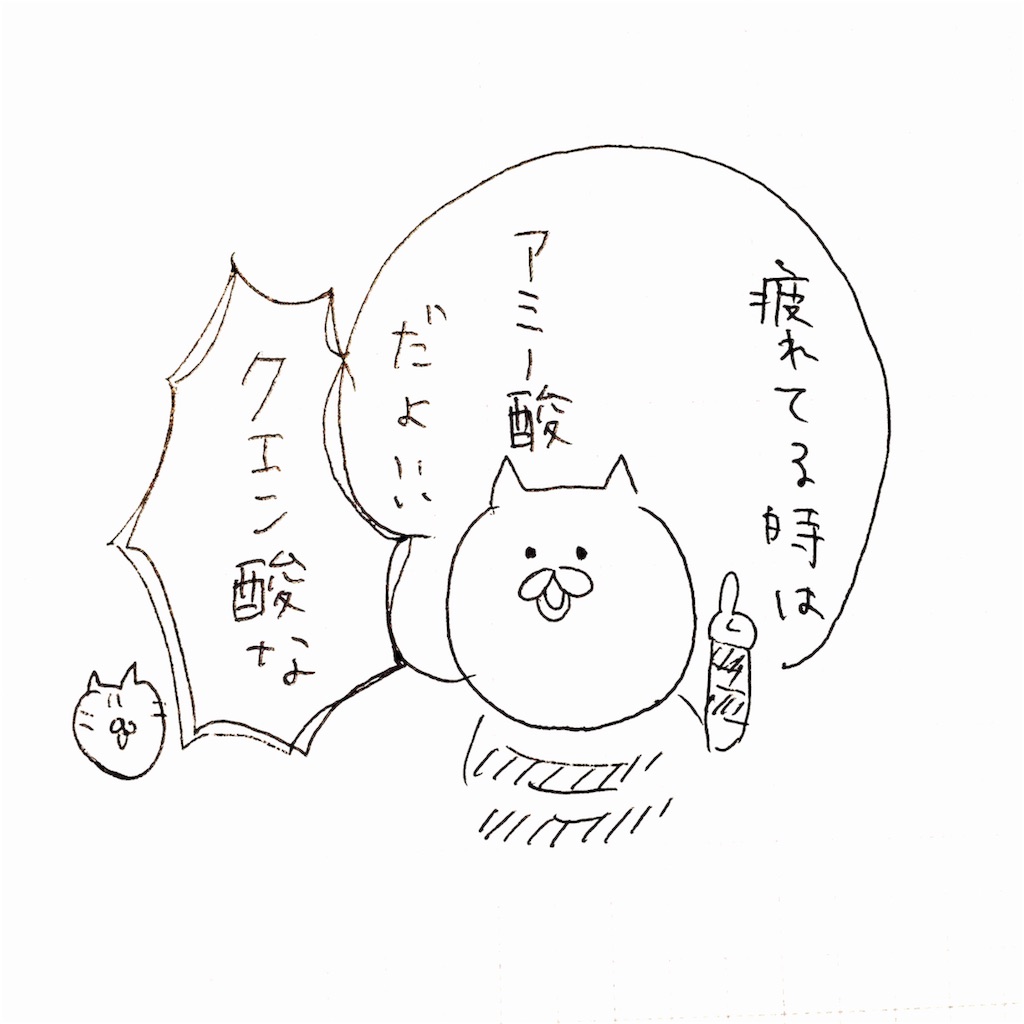 疲れてる時は
アミー酸
だよ!!
クエン酸な